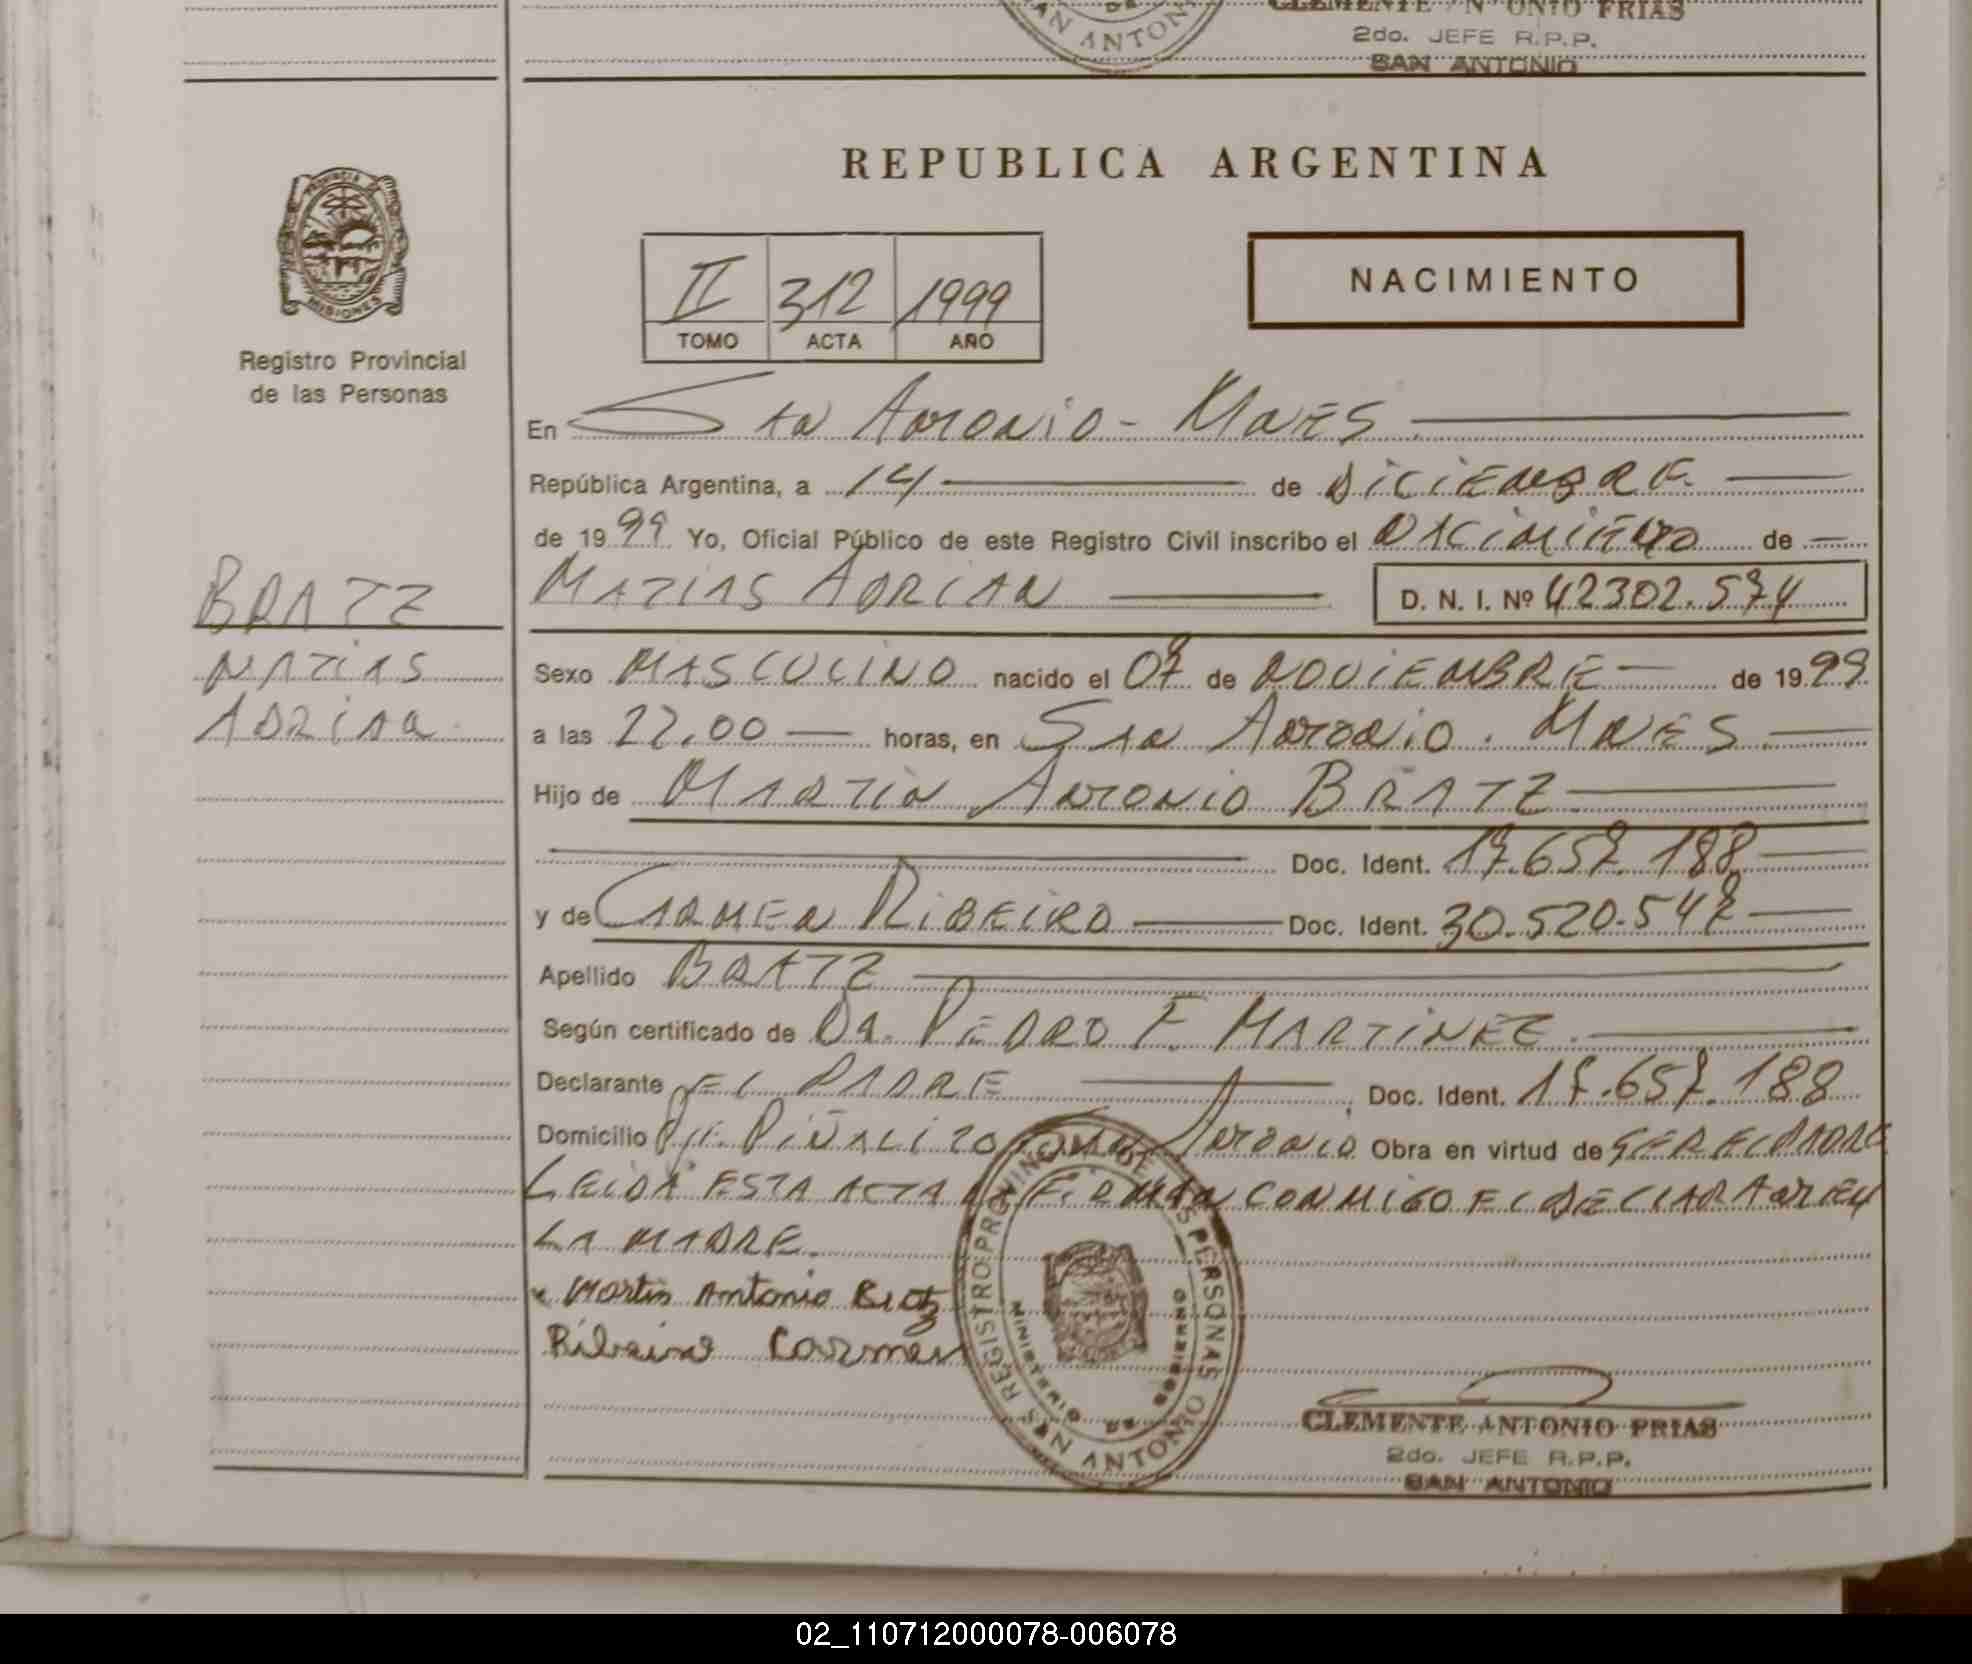 SAN ANTONIO
CLEMENTE ANTONIO FRIAS
2do. JEFE R.P.P.
SAN ANTONIO
PROVINCIA DE
MISIONES
Registro Provincial
de las Personas
REPUBLICA ARGENTINA
II 312 1999
TOMO ACTA AÑO
NACIMIENTO
En San Antonio - Mnes
República Argentina, a 14 de Diciembre
de 1999 Yo, Oficial Público de este Registro Civil inscribo el nacimiento de
BRATZ
MATIAS
ADRIAN
MATIAS ADRIAN D. N. I. Nº 42302.574
Sexo MASCULINO nacido el 07 de NOVIEMBRE de 1999
a las 22,00 horas, en San Antonio. Mnes
Hijo de MARTIN ANTONIO BRATZ
Doc. Ident. 17.657.188
y de CARMEN RIBEIRO Doc. Ident. 30.520.547
Apellido BRATZ
Según certificado de Dr. PEDRO F. MARTINEZ
Declarante EL PADRE Doc. Ident. 17.657.188
Domicilio PJE. PIÑALITO SAN ANTONIO Obra en virtud de SER EL PADRE
LEIDA ESTA ACTA LA FIRMAN CONMIGO EL DECLARANTE Y
LA MADRE.
Martin Antonio Bratz
Ribeiro Carmen
REGISTRO PROVINCIAL DE LAS PERSONAS
MINISTERIO DE GOBIERNO
SAN ANTONIO
CLEMENTE ANTONIO FRIAS
2do. JEFE R.P.P.
SAN ANTONIO
02_110712000078-006078